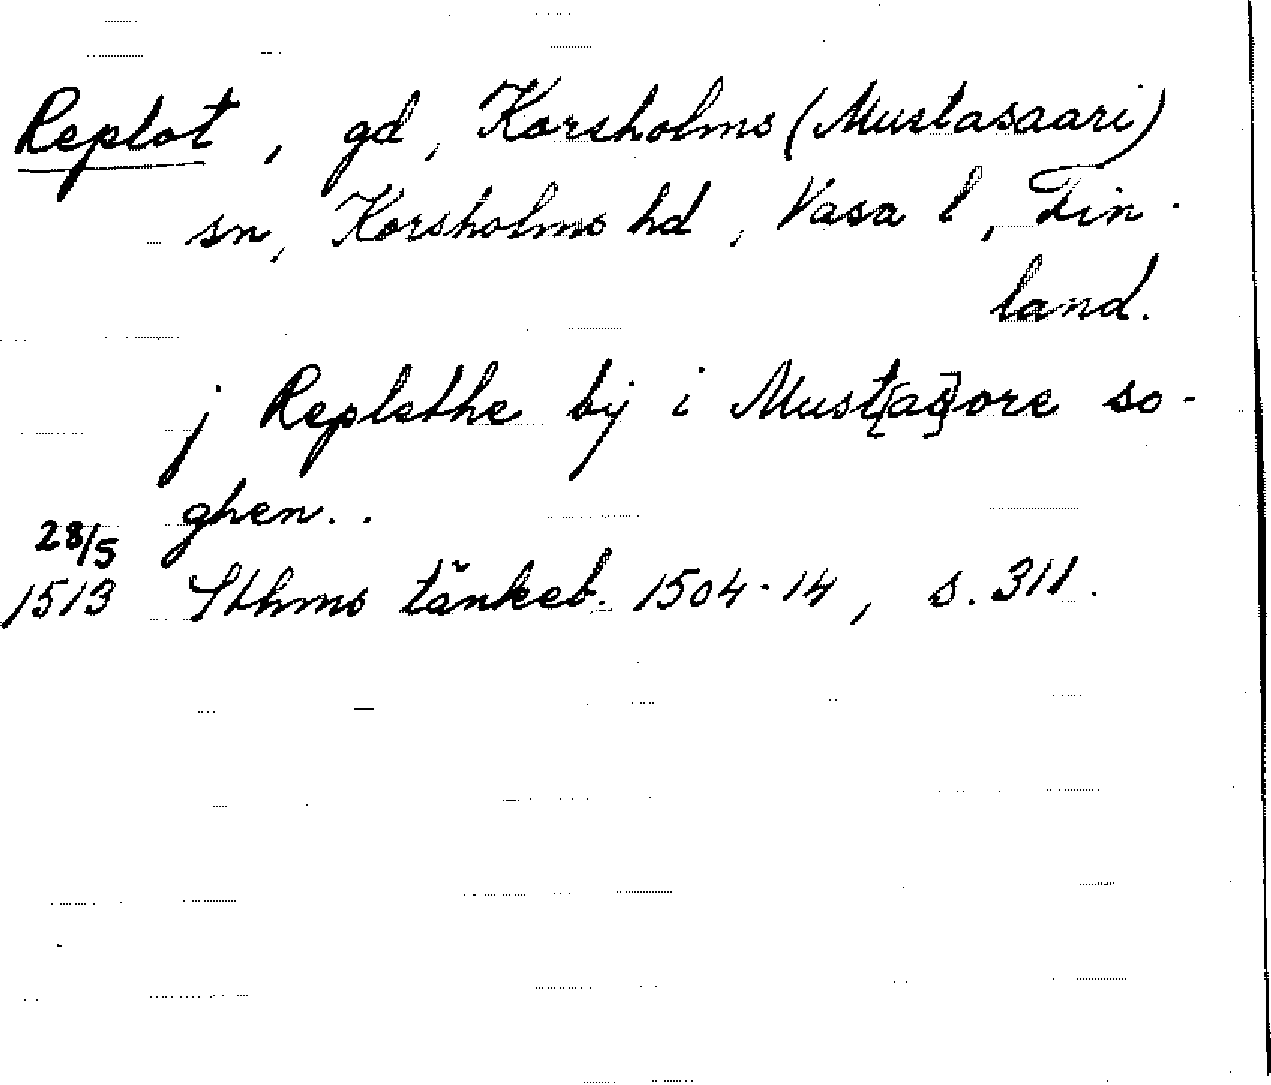 Replot, gd, Korsholms (Mustasaari)
sn, Korsholms hd, Vasa l, Fin-
land.
j Replethe by i Must[as]ore so-
ghen..
28/5
1513 Sthms tänkeb. 1504-14, s. 311.